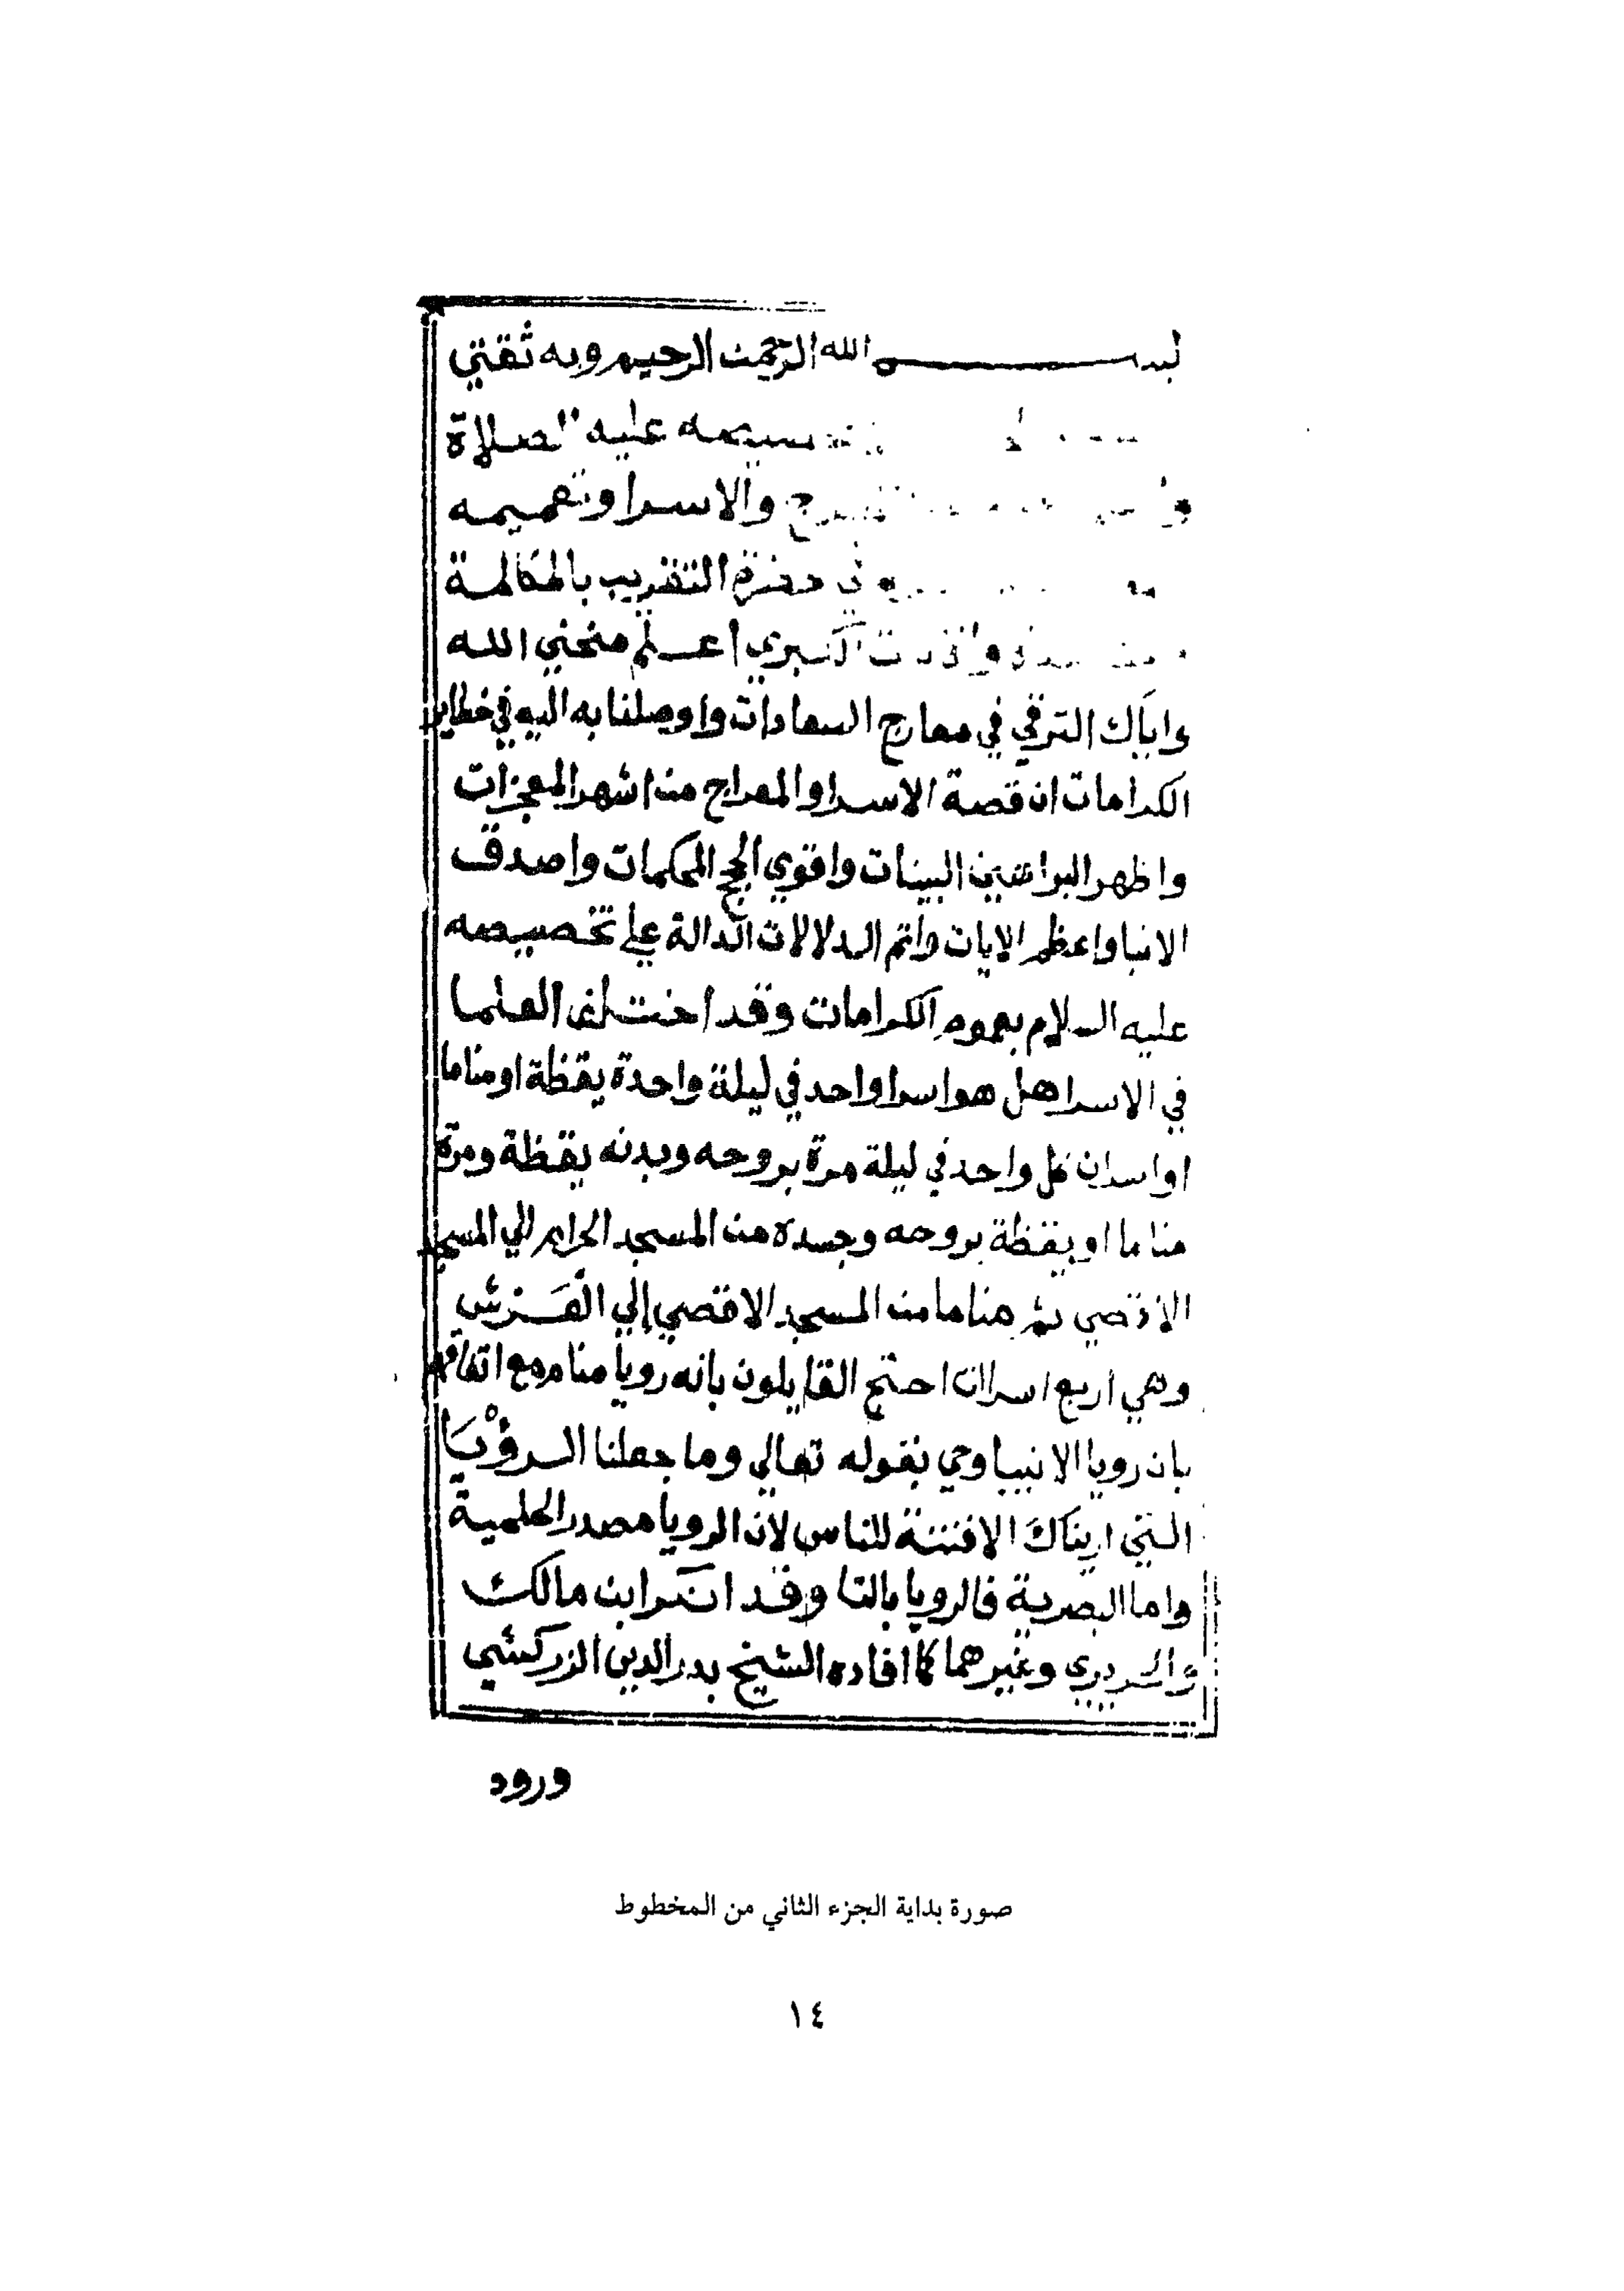 بسم الله الرحمن الرحيم وبه ثقتي
عليه الصلاة
والاسرا وتعميمه
حضرة التقريب بالمكالمة
الكبري اعلم منحني الله
واياك الترقي في معارج السعادات واوصلنا به اليه في حظاير
الكرامات ان قصة الاسرا والمعراج من اشهر المعجزات
واظهر البراهين البينات واقوي الحجج المحكمات واصدق
الانبا واعظم الايات واتم الدلالات الدالة علي تخصيصه
عليه السلام بعموم الكرامات وقد اختلف العلما
في الاسرا هل هو اسرا واحد في ليلة واحدة يقظة او مناما
او اسران كل واحد في ليلة مرة بروحه وبدنه يقظة ومرة
مناما او يقظة بروحه وجسده من المسجد الحرام الي المسجد
الاقصي ثم مناما من المسجد الاقصي إلي العَرش
وهي اربع اسراات احتج القايلون بانه رويا منام مع اتفاقهم
بان رويا الانبيا وحي بقوله تعالي وما جعلنا الرؤْيَا
التي اريناكَ الا فتنة للناس لان الرويا مصدر الحلمية
واما البصرية فالرويا بالتا وقد انكر ابن مالك
والحريري وغيرهما كما افاده الشيخ بدر الدين الزركشي
ورود
صورة بداية الجزء الثاني من المخطوط
١٤